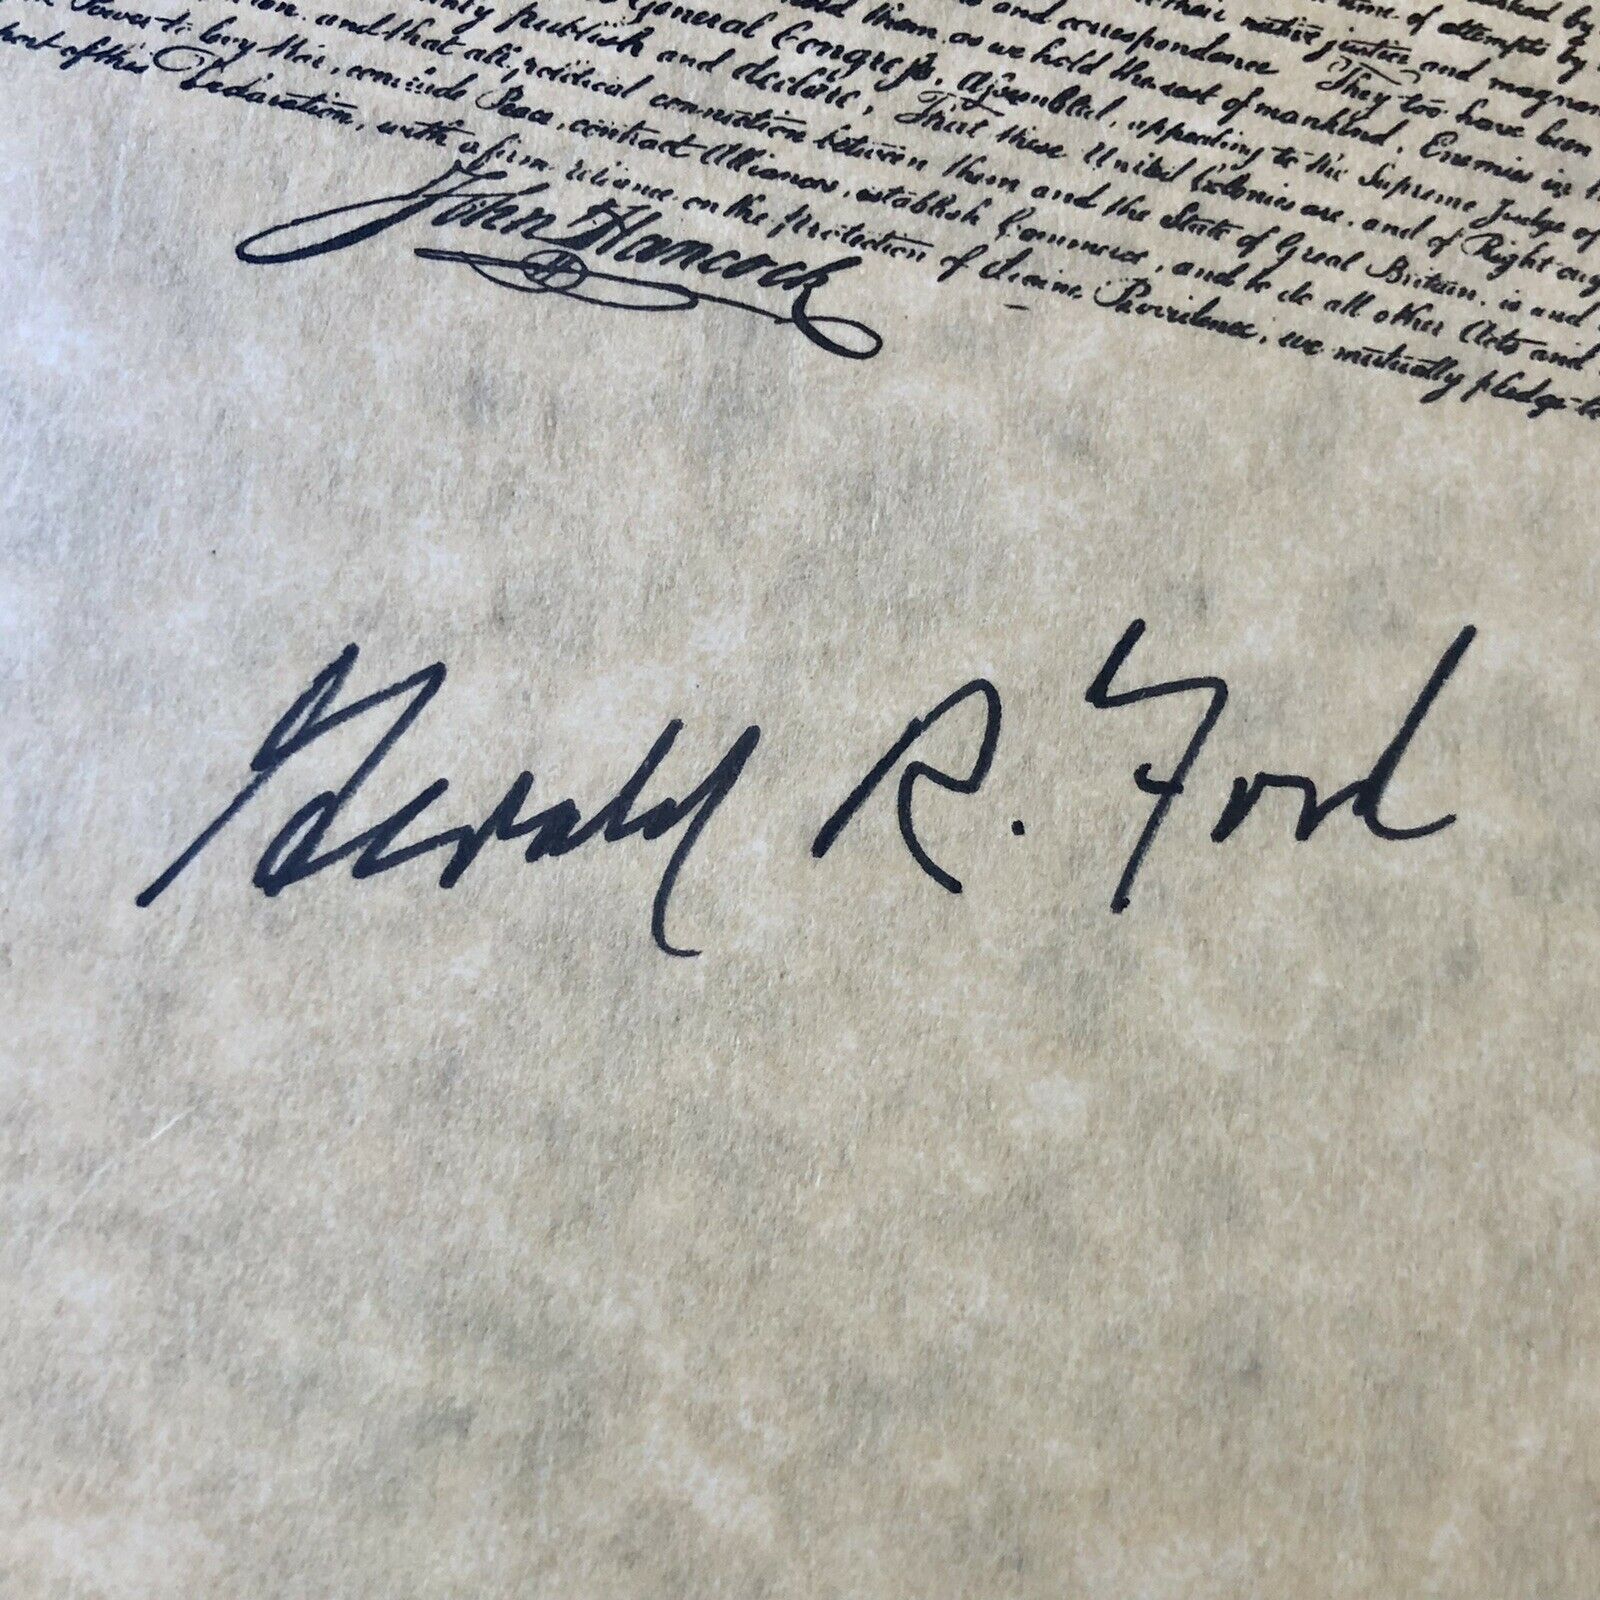 of attempts by
their native justice and magnan
and correspondence They too have been
hold them, as we hold the rest of mankind, Enemies in
General Congress, Assembled, appealing to the Supreme Judge of
publish and declare, That these United Colonies are, and of Right oug
and that all political connection between them and the State of Great Britain, is and
Power to levy War, conclude Peace, contract Alliances, establish Commerce, and to do all other Acts and
port of this Declaration, with a firm reliance on the protection of divine Providence, we mutually pledge to
John Hancock
Gerald R. Ford